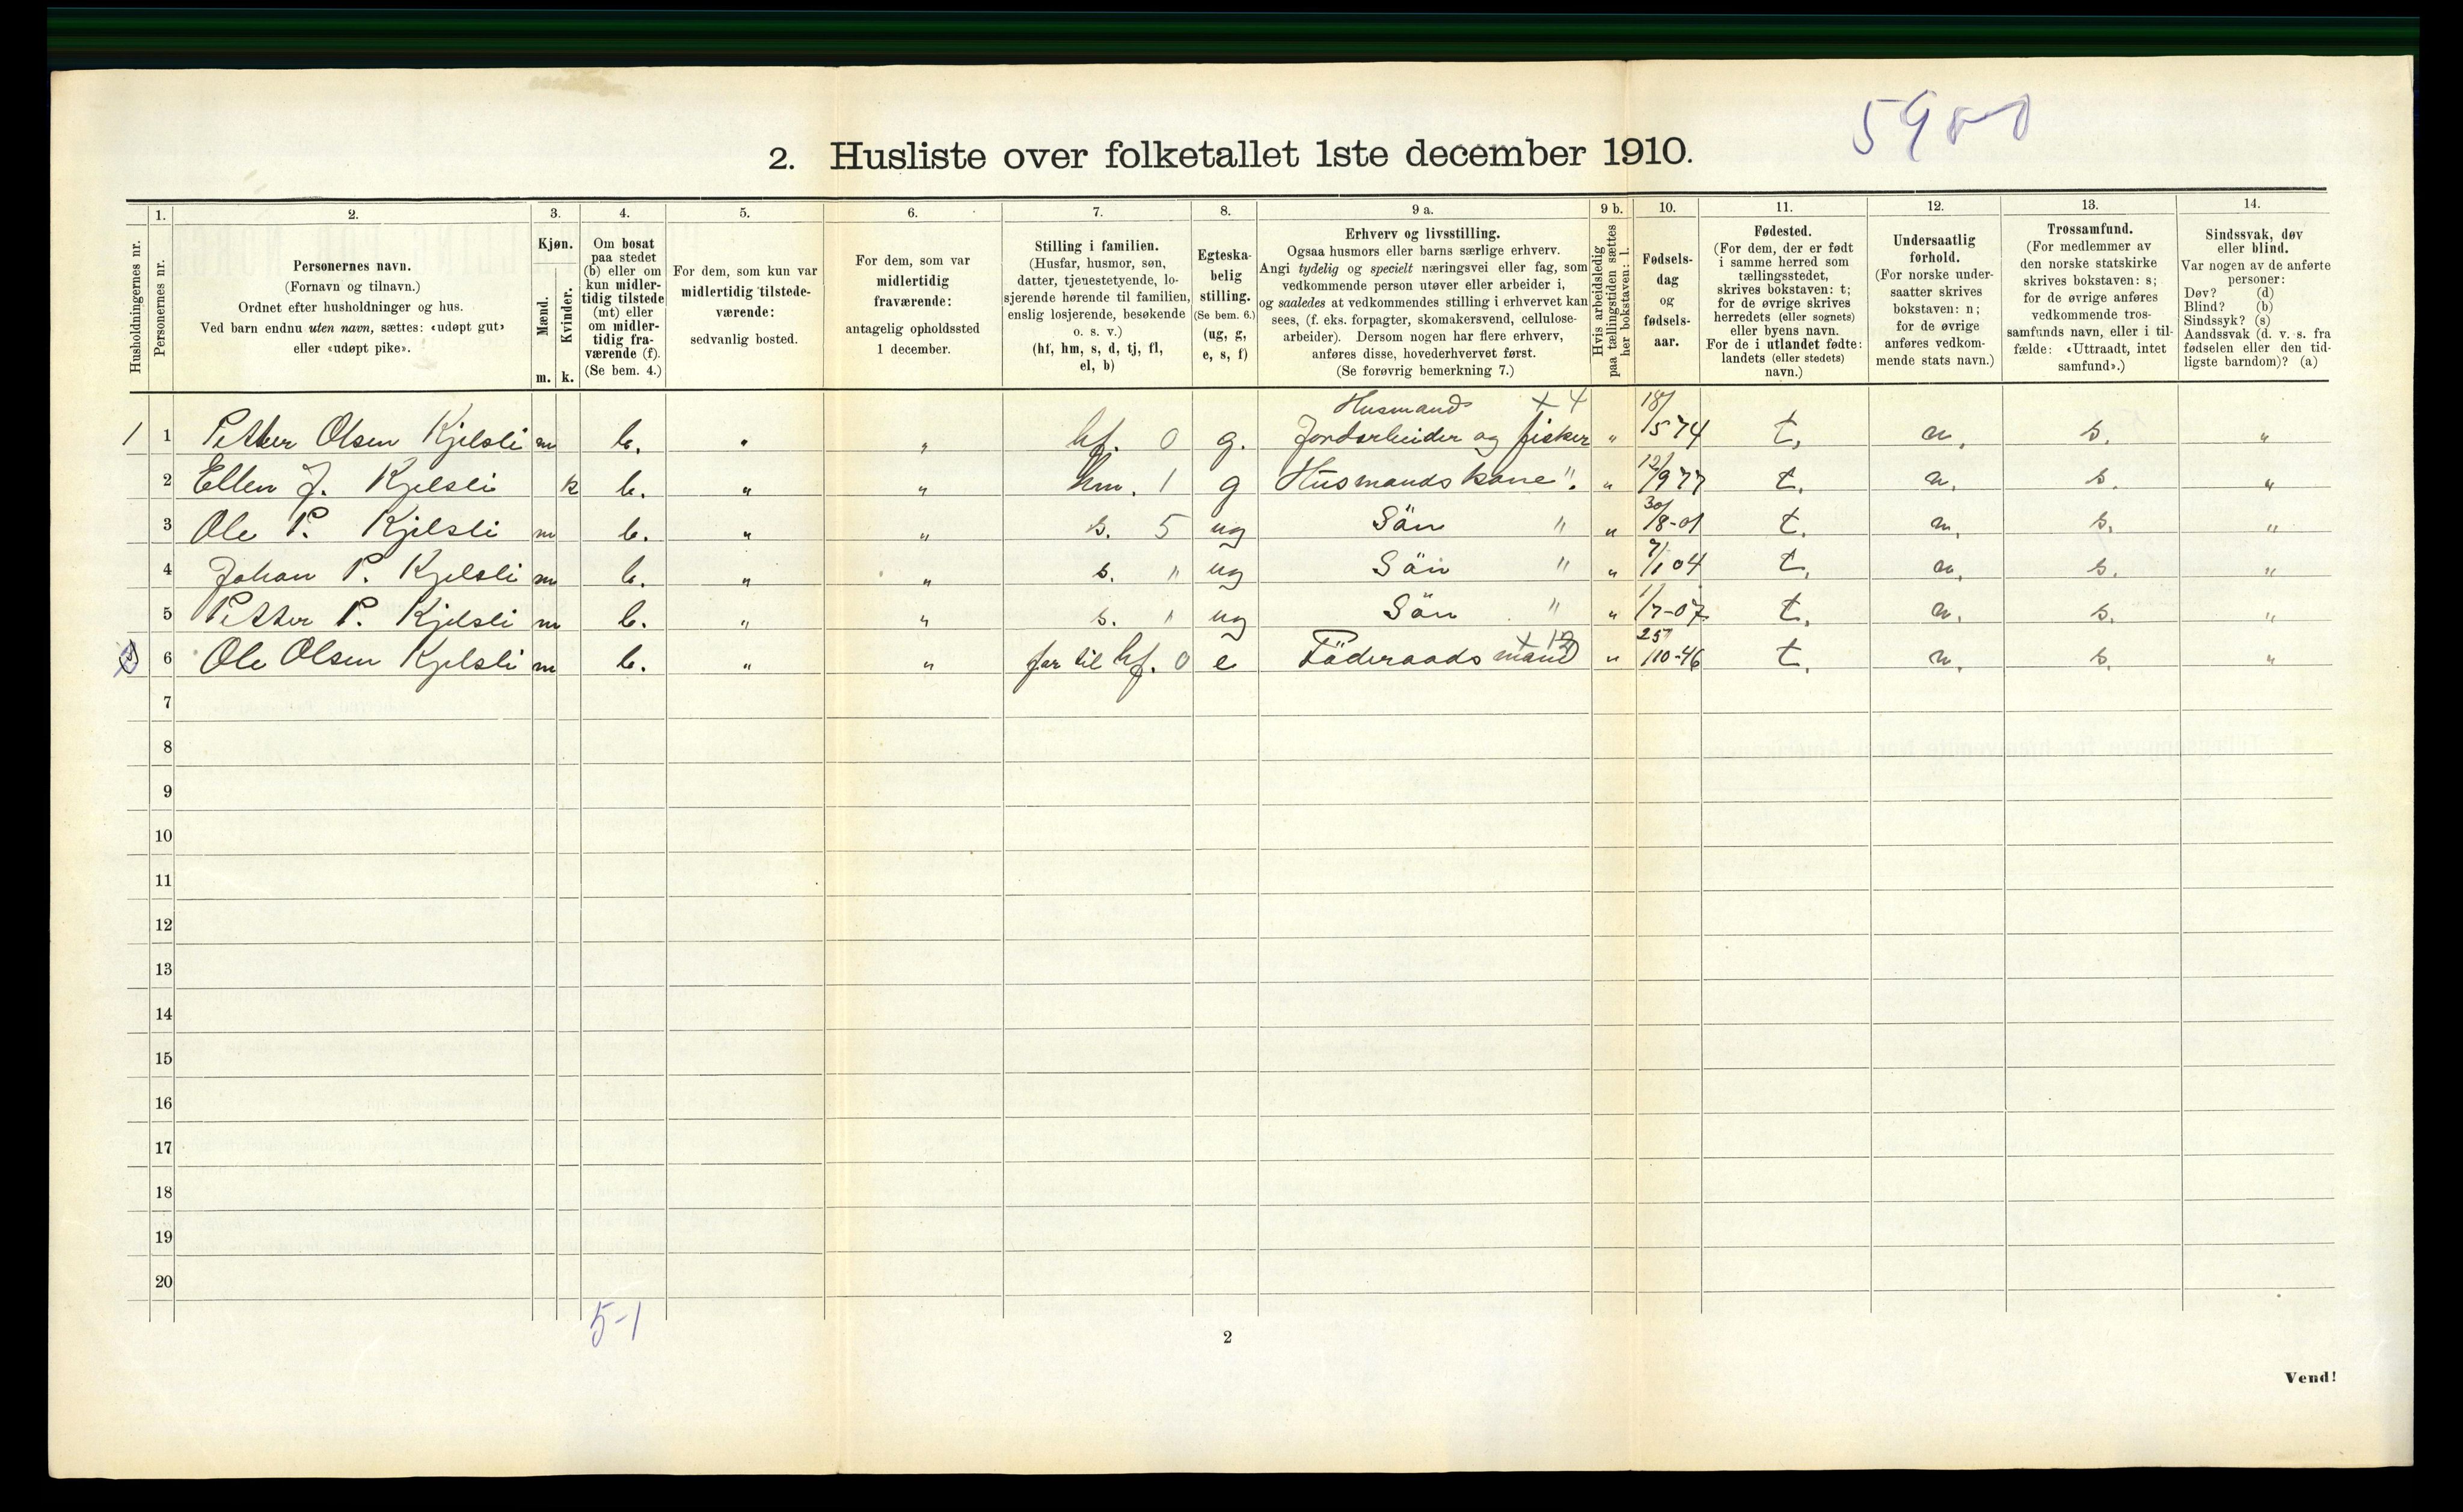 5980
2. Husliste over folketallet 1ste december 1910.
Husholdningernes nr.
1.
Personernes nr.
2.
Personernes navn.
(Fornavn og tilnavn.)
Ordnet efter husholdninger og hus.
Ved barn endnu uten navn, sættes: «udøpt gut»
eller «udøpt pike».
3.
Kjøn.
Mænd.
Kvinder.
m.
k.
4.
Om bosat
paa stedet
(b) eller om
kun midler-
tidig tilstede
(mt) eller
om midler-
tidig fra-
værende (f).
(Se bem. 4.)
5.
For dem, som kun var
midlertidig tilstede-
værende:
sedvanlig bosted.
6.
For dem, som var
midlertidig
fraværende:
antagelig opholdssted
1 december.
7.
Stilling i familien.
(Husfar, husmor, søn,
datter, tjenestetyende, lo-
sjerende hørende til familien,
enslig losjerende, besøkende
o. s. v.)
(hf, hm, s, d, tj, fl,
el, b)
8.
Egteska-
belig
stilling.
(Se bem. 6.)
(ug, g,
e, s, f)
9 a.
Erhverv og livsstilling.
Ogsaa husmors eller barns særlige erhverv.
Angi tydelig og specielt næringsvei eller fag, som
vedkommende person utøver eller arbeider i,
og saaledes at vedkommendes stilling i erhvervet kan
sees, (f. eks. forpagter, skomakersvend, cellulose-
arbeider). Dersom nogen har flere erhverv,
anføres disse, hovederhvervet først.
(Se forøvrig bemerkning 7.)
9 b.
Hvis arbeidsledig
paa tællingstiden sættes
her bokstaven: l.
10.
Fødsels-
dag
og
fødsels-
aar.
11.
Fødested.
(For dem, der er født
i samme herred som
tællingsstedet,
skrives bokstaven: t;
for de øvrige skrives
herredets (eller sognets)
eller byens navn.
For de i utlandet fødte:
landets (eller stedets)
navn.)
12.
Undersaatlig
forhold.
(For norske under-
saatter skrives
bokstaven: n;
for de øvrige
anføres vedkom-
mende stats navn.)
13.
Trossamfund.
(For medlemmer av
den norske statskirke
skrives bokstaven: s;
for de øvrige anføres
vedkommende tros-
samfunds navn, eller i til-
fælde: «Uttraadt, intet
samfund».)
14.
Sindssvak, døv
eller blind.
Var nogen av de anførte
personer:
Døv? (d)
Blind? (b)
Sindssyk? (s)
Aandssvak (d. v. s. fra
fødselen eller den tid-
ligste barndom)? (a)
Husmand x 4
1 1 Petter Olsen Kjelsli m b. " " hf. 0 g. Jordarbeider og fisker " 18/5 74 t. n. s. "
2 Ellen J. Kjelsli k b. " " hm. 1 g Husmands kone ". " 12/9 77 t. n. s. "
3 Ole P. Kjelsli m b. " " s. 5 ug Sön " " 30/8-01 t. n. s. "
4 Johan P. Kjelsli m b. " " s. " ug Sön " " 7/1 04 t. n. s. "
5 Petter P. Kjelsli m b. " " s. " ug Sön " " 1/7-07 t. n. s. "
6 Ole Olsen Kjelsli m b. " " far til hf. 0 e Föderaads mand x 12 " 25/10-46 t. n. s. "
7
8
9
10
11
12
13
14
15
16
17
18
19
20
5-1
2
Vend!